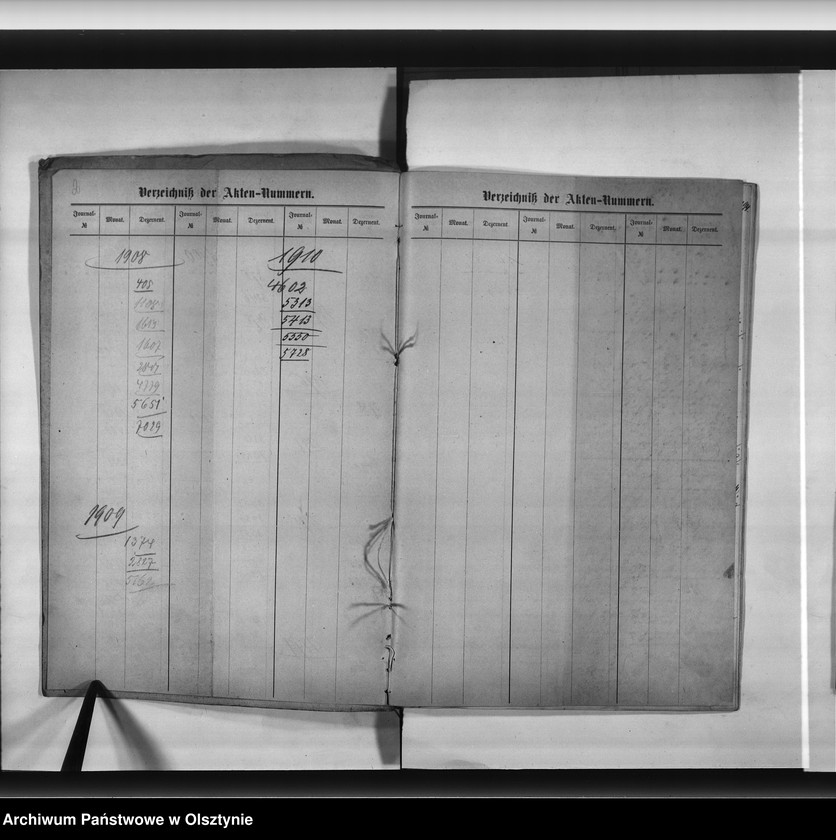 Verzeichniß der Akten-Nummern.
Journal- №
Monat.
Dezernent.
Journal- №
Monat.
Dezernent.
Journal- №
Monat.
Dezernent.
1908
405
5651
7029
1909
1374
1910
4602
5313
5413
5350
5728
Verzeichniß der Akten-Nummern.
Journal- №
Monat.
Dezernent.
Journal- №
Monat.
Dezernent.
Journal- №
Monat.
Dezernent.
Archiwum Państwowe w Olsztynie